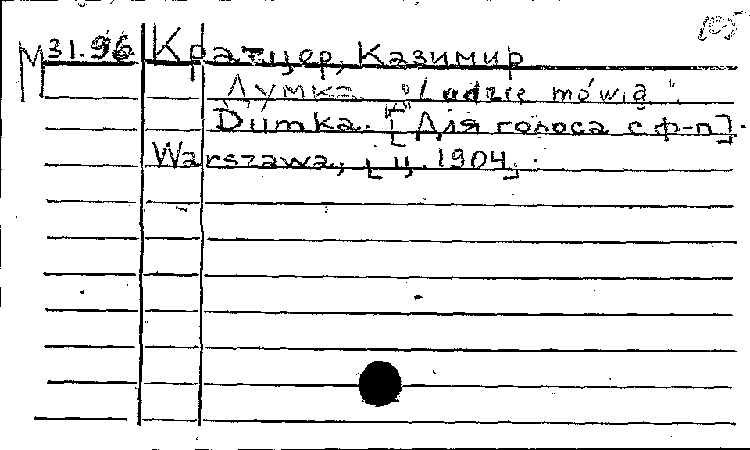 105
М 31.96 Кратцер, Казимир
Думка "Ludzie mówią".
Dumka. [Для голоса с ф-п].
Warszawa, [ц. 1904].